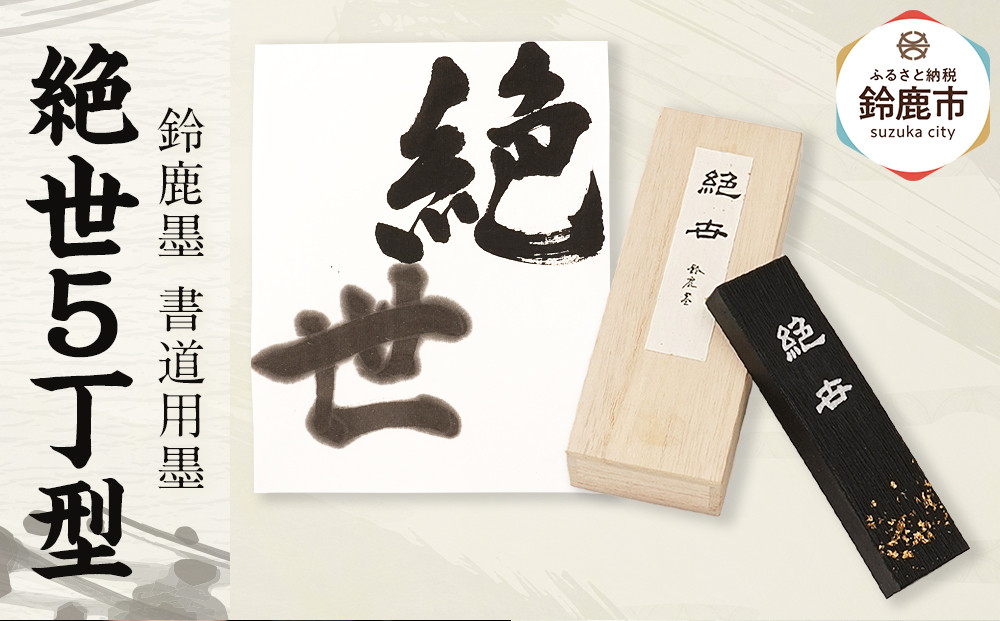 絶世5丁型
鈴鹿墨 書道用墨
絶世
絶世
鈴鹿墨
絶世
ふるさと納税
鈴鹿市
suzuka city